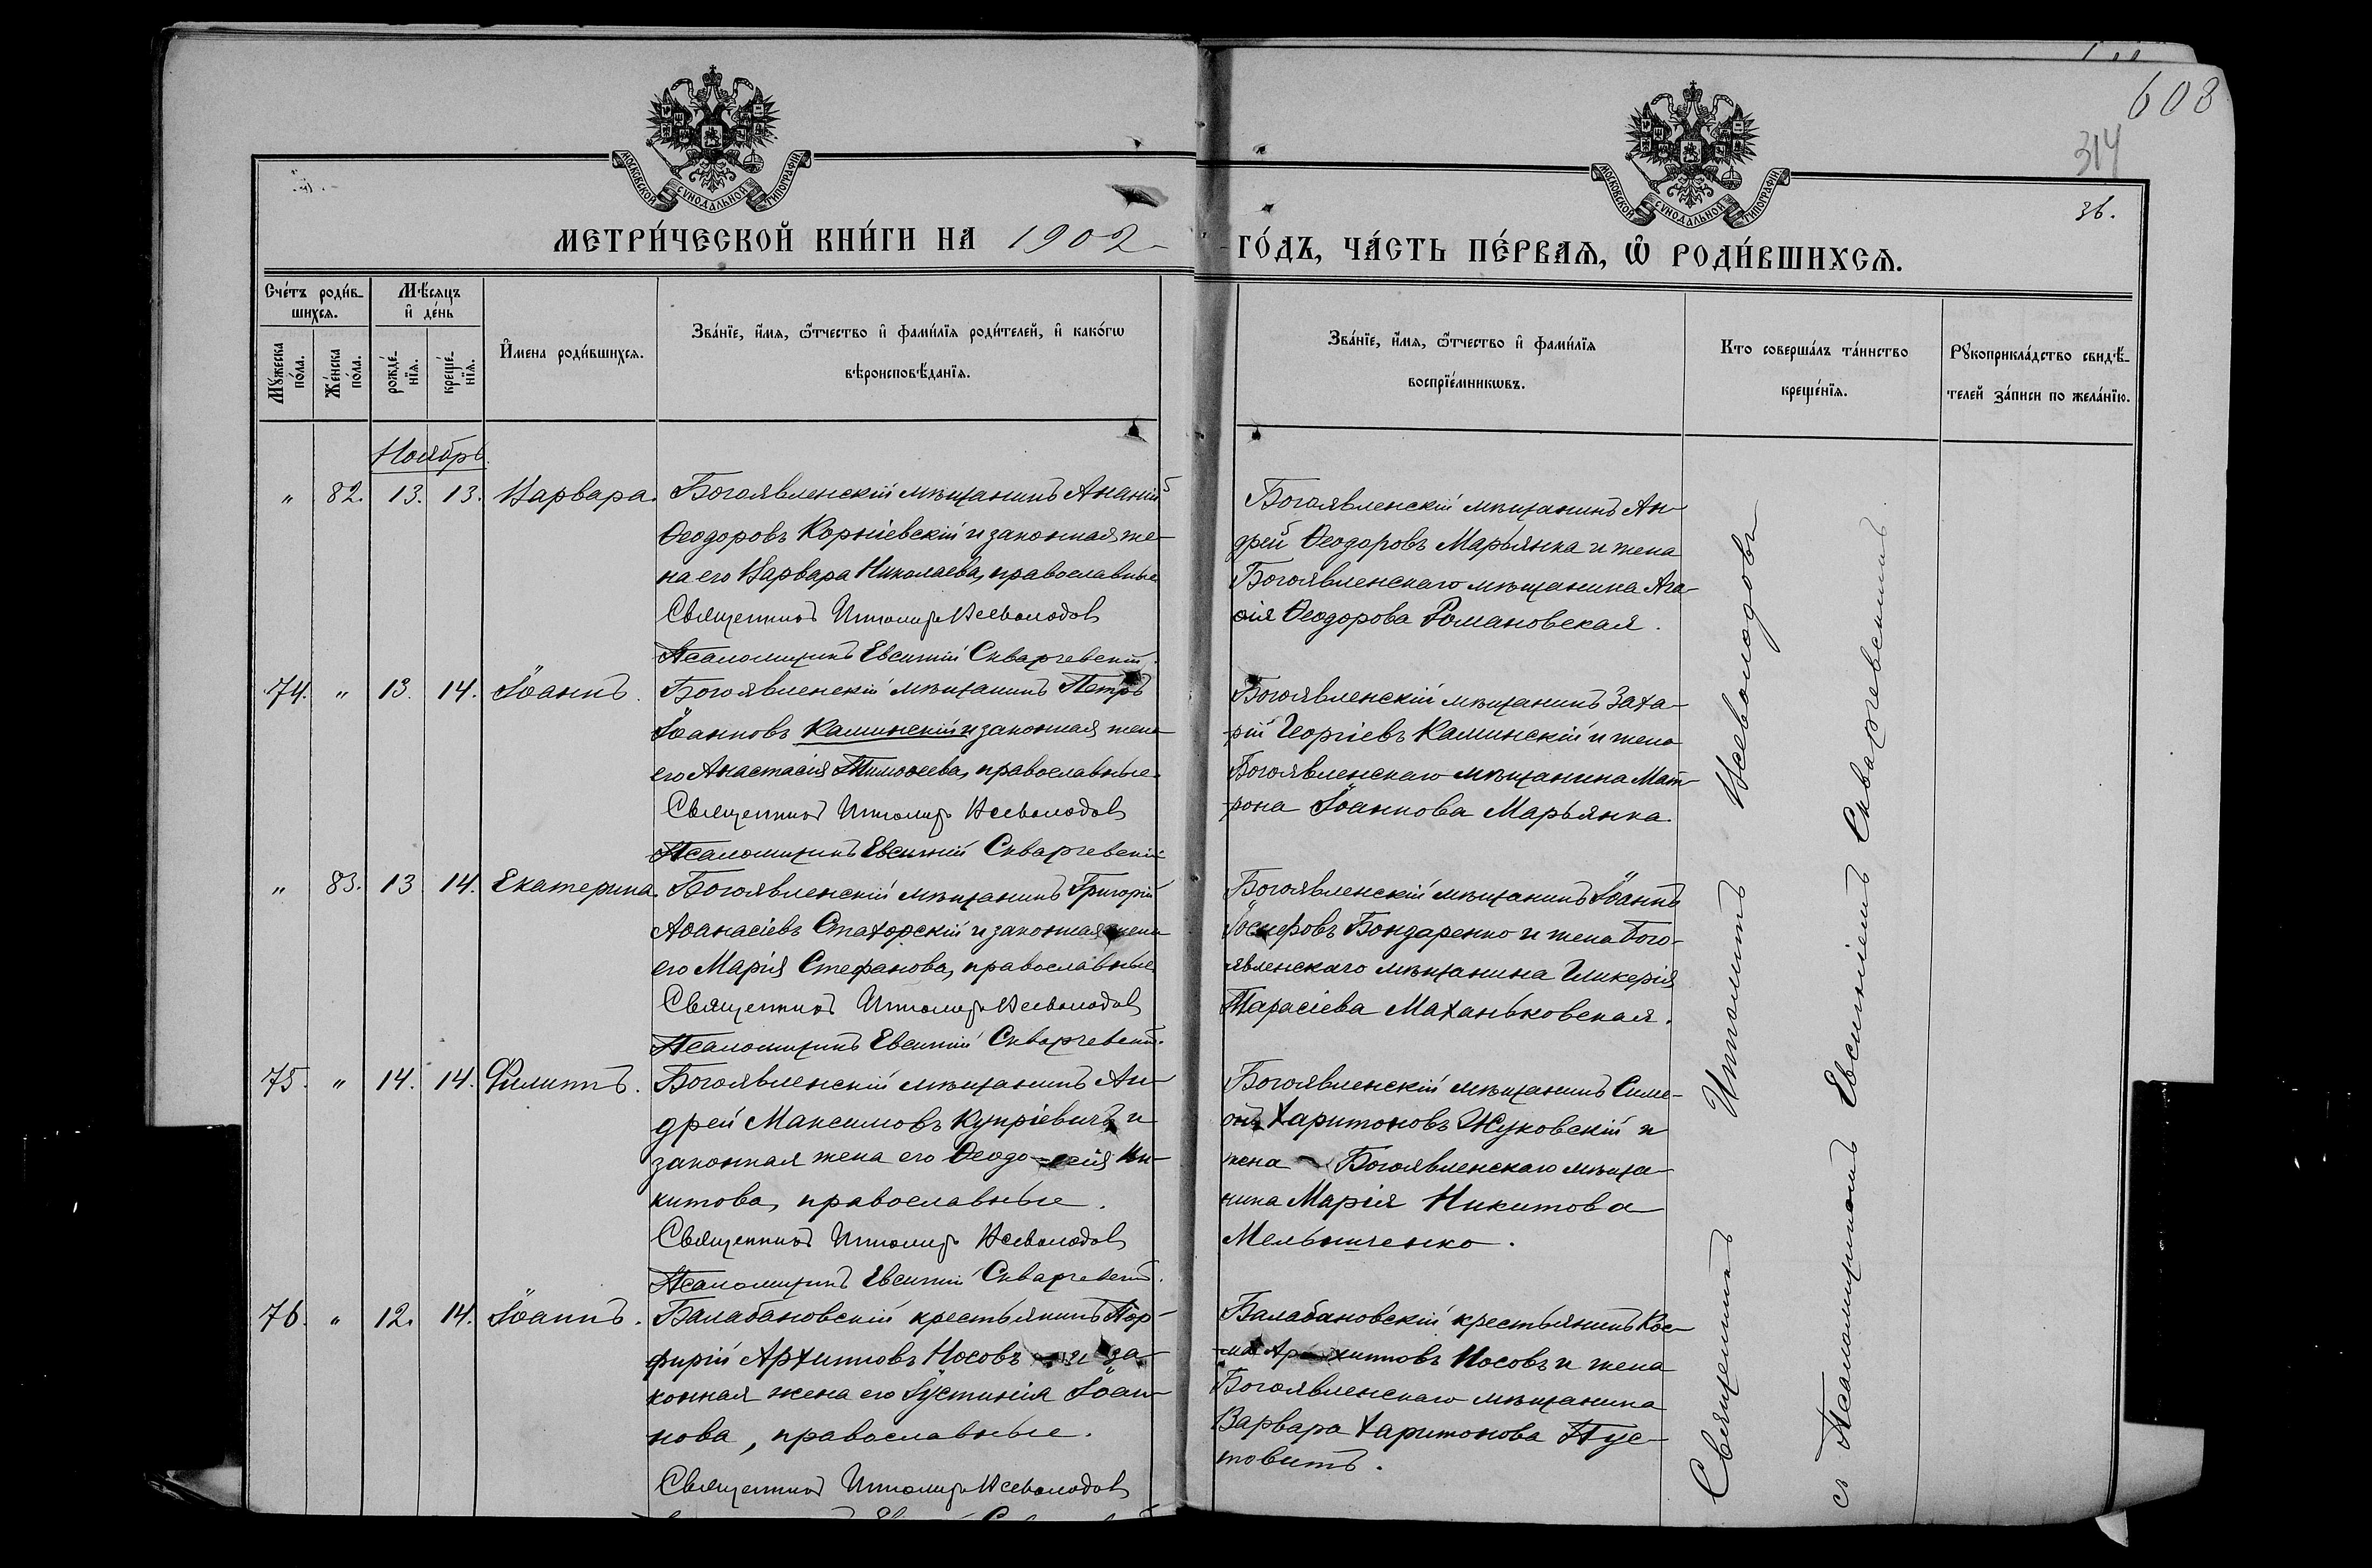 608
314
36.
МОСКОВСКОЙ СѴНОДАЛЬНОЙ ТИПОГРАФІИ
МОСКОВСКОЙ СѴНОДАЛЬНОЙ ТИПОГРАФІИ
МЕТРИ́ЧЕСКОЙ КНИ́ГИ НА 1902
ГО́ДЪ, ЧА́СТЬ ПЕ́РВАѦ, Ѡ РОДИ́ВШИХСѦ.
Сче́тъ роди́в-
шихсѧ.
Мѣ́сѧцъ
и де́нь
Мꙋ́жеска
по́ла.
Же́нска
по́ла.
рожде́-
нїѧ.
креще́-
нїѧ.
И҆мена роди́вшихсѧ.
Зва́нїе, и҆́мѧ, ѻ҆́тчество и҆ фами́лїѧ роди́телей, и҆ како́гѡ
вѣроисповѣ́данїѧ.
Зва́нїе, и҆́мѧ, ѻ҆́тчество и҆ фами́лїѧ
воспрїе́мникѡвъ.
Кто соверша́лъ та́инство
креще́нїѧ.
Рꙋкоприкла́дство свидѣ́-
телей за́писи по жела́нїю.
Ноябрь.
" 82. 13. 13. Варвара. Богоявленскій мѣщанинъ Ананій
Ѳеодоровъ Корніевскій и законная же-
на его Варвара Николаева, православные
Священникъ Ипполитъ Всеволодовъ
Псаломщикъ Евсигній Скварчевскій.
Богоявленскій мѣщанинъ Ан-
дрей Ѳеодоровъ Марьянка и жена
Богоявленскаго мѣщанина Ага-
ѳія Ѳеодорова Романовская.
74. " 13. 14. Іоаннъ. Богоявленскій мѣщанинъ Петръ
Іоанновъ Каминскій и законная жена
его Анастасія Тимоѳеева, православные.
Священникъ Ипполитъ Всеволодовъ
Псаломщикъ Евсигній Скварчевскій
Богоявленскій мѣщанинъ Заха-
рій Георгіевъ Каминскій и жена
Богоявленскаго мѣщанина Мат-
рона Іоаннова Марьянка.
" 83. 13. 14. Екатерина. Богоявленскій мѣщанинъ Григорій
Аѳанасіевъ Стахорскій и законная жена
его Марія Стефанова, православные
Священникъ Ипполитъ Всеволодовъ
Псаломщикъ Евсигній Скварчевскій.
Богоявленскій мѣщанинъ Іоаннъ
Іосифовъ Бондаренко и жена Бого-
явленскаго мѣщанина Гликерія
Тарасіева Маханьковская.
75. " 14. 14. Филиппъ. Богоявленскій мѣщанинъ Ан-
дрей Максимовъ Купріевичъ и
законная жена его Ѳеодо-сія Ни-
китова, православные.
Священникъ Ипполитъ Всеволодовъ
Псаломщикъ Евсигній Скварчевскій.
Богоявленскій мѣщанинъ Симе-
онъ Харитоновъ Жуковскій и
жена Богоявленскаго мѣща-
нина Марія Никитова
Мельниченко.
76. " 12. 14. Іоаннъ. Балабановскій крестьянинъ Пор-
фирій Архиповъ Носовъ и за-
конная жена его Іустинія Іоан-
нова, православные.
Священникъ Ипполитъ Всеволодовъ
Балабановскій крестьянинъ Кос-
ма Архиповъ Носовъ и жена
Богоявленскаго мѣщанина
Варвара Харитонова Пус-
товитъ.
Священникъ Ипполитъ Всеволодовъ
съ Псаломщикомъ Евсигніемъ Скварчевскимъ